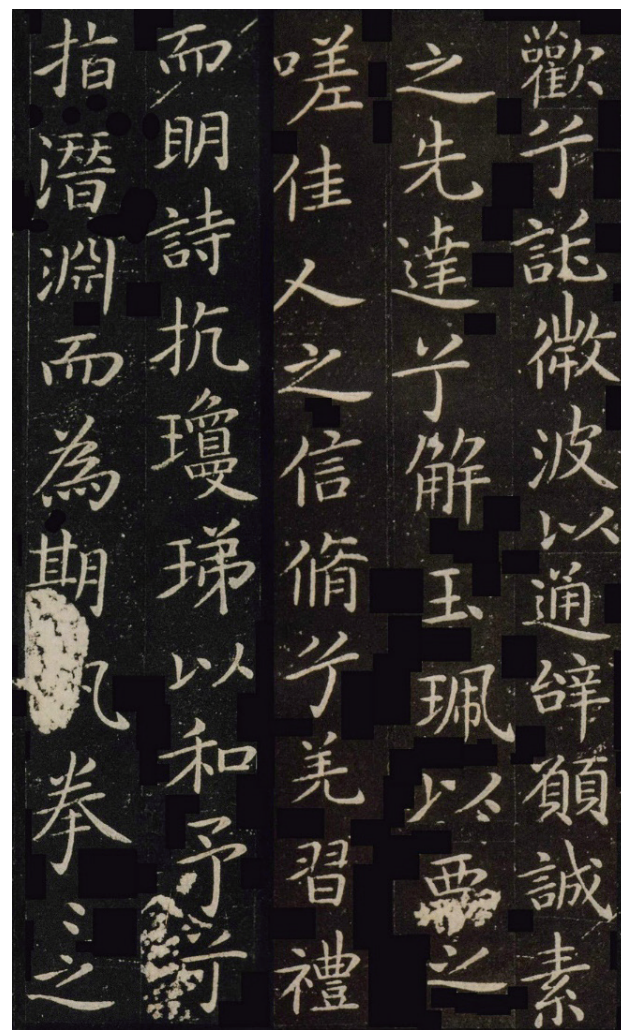 歡兮託微波以通辭願誠素
之先達兮解玉珮以要之
嗟佳人之信脩兮羌習禮
而明詩抗瓊珶以和予兮
指潛淵而為期執拳〻之